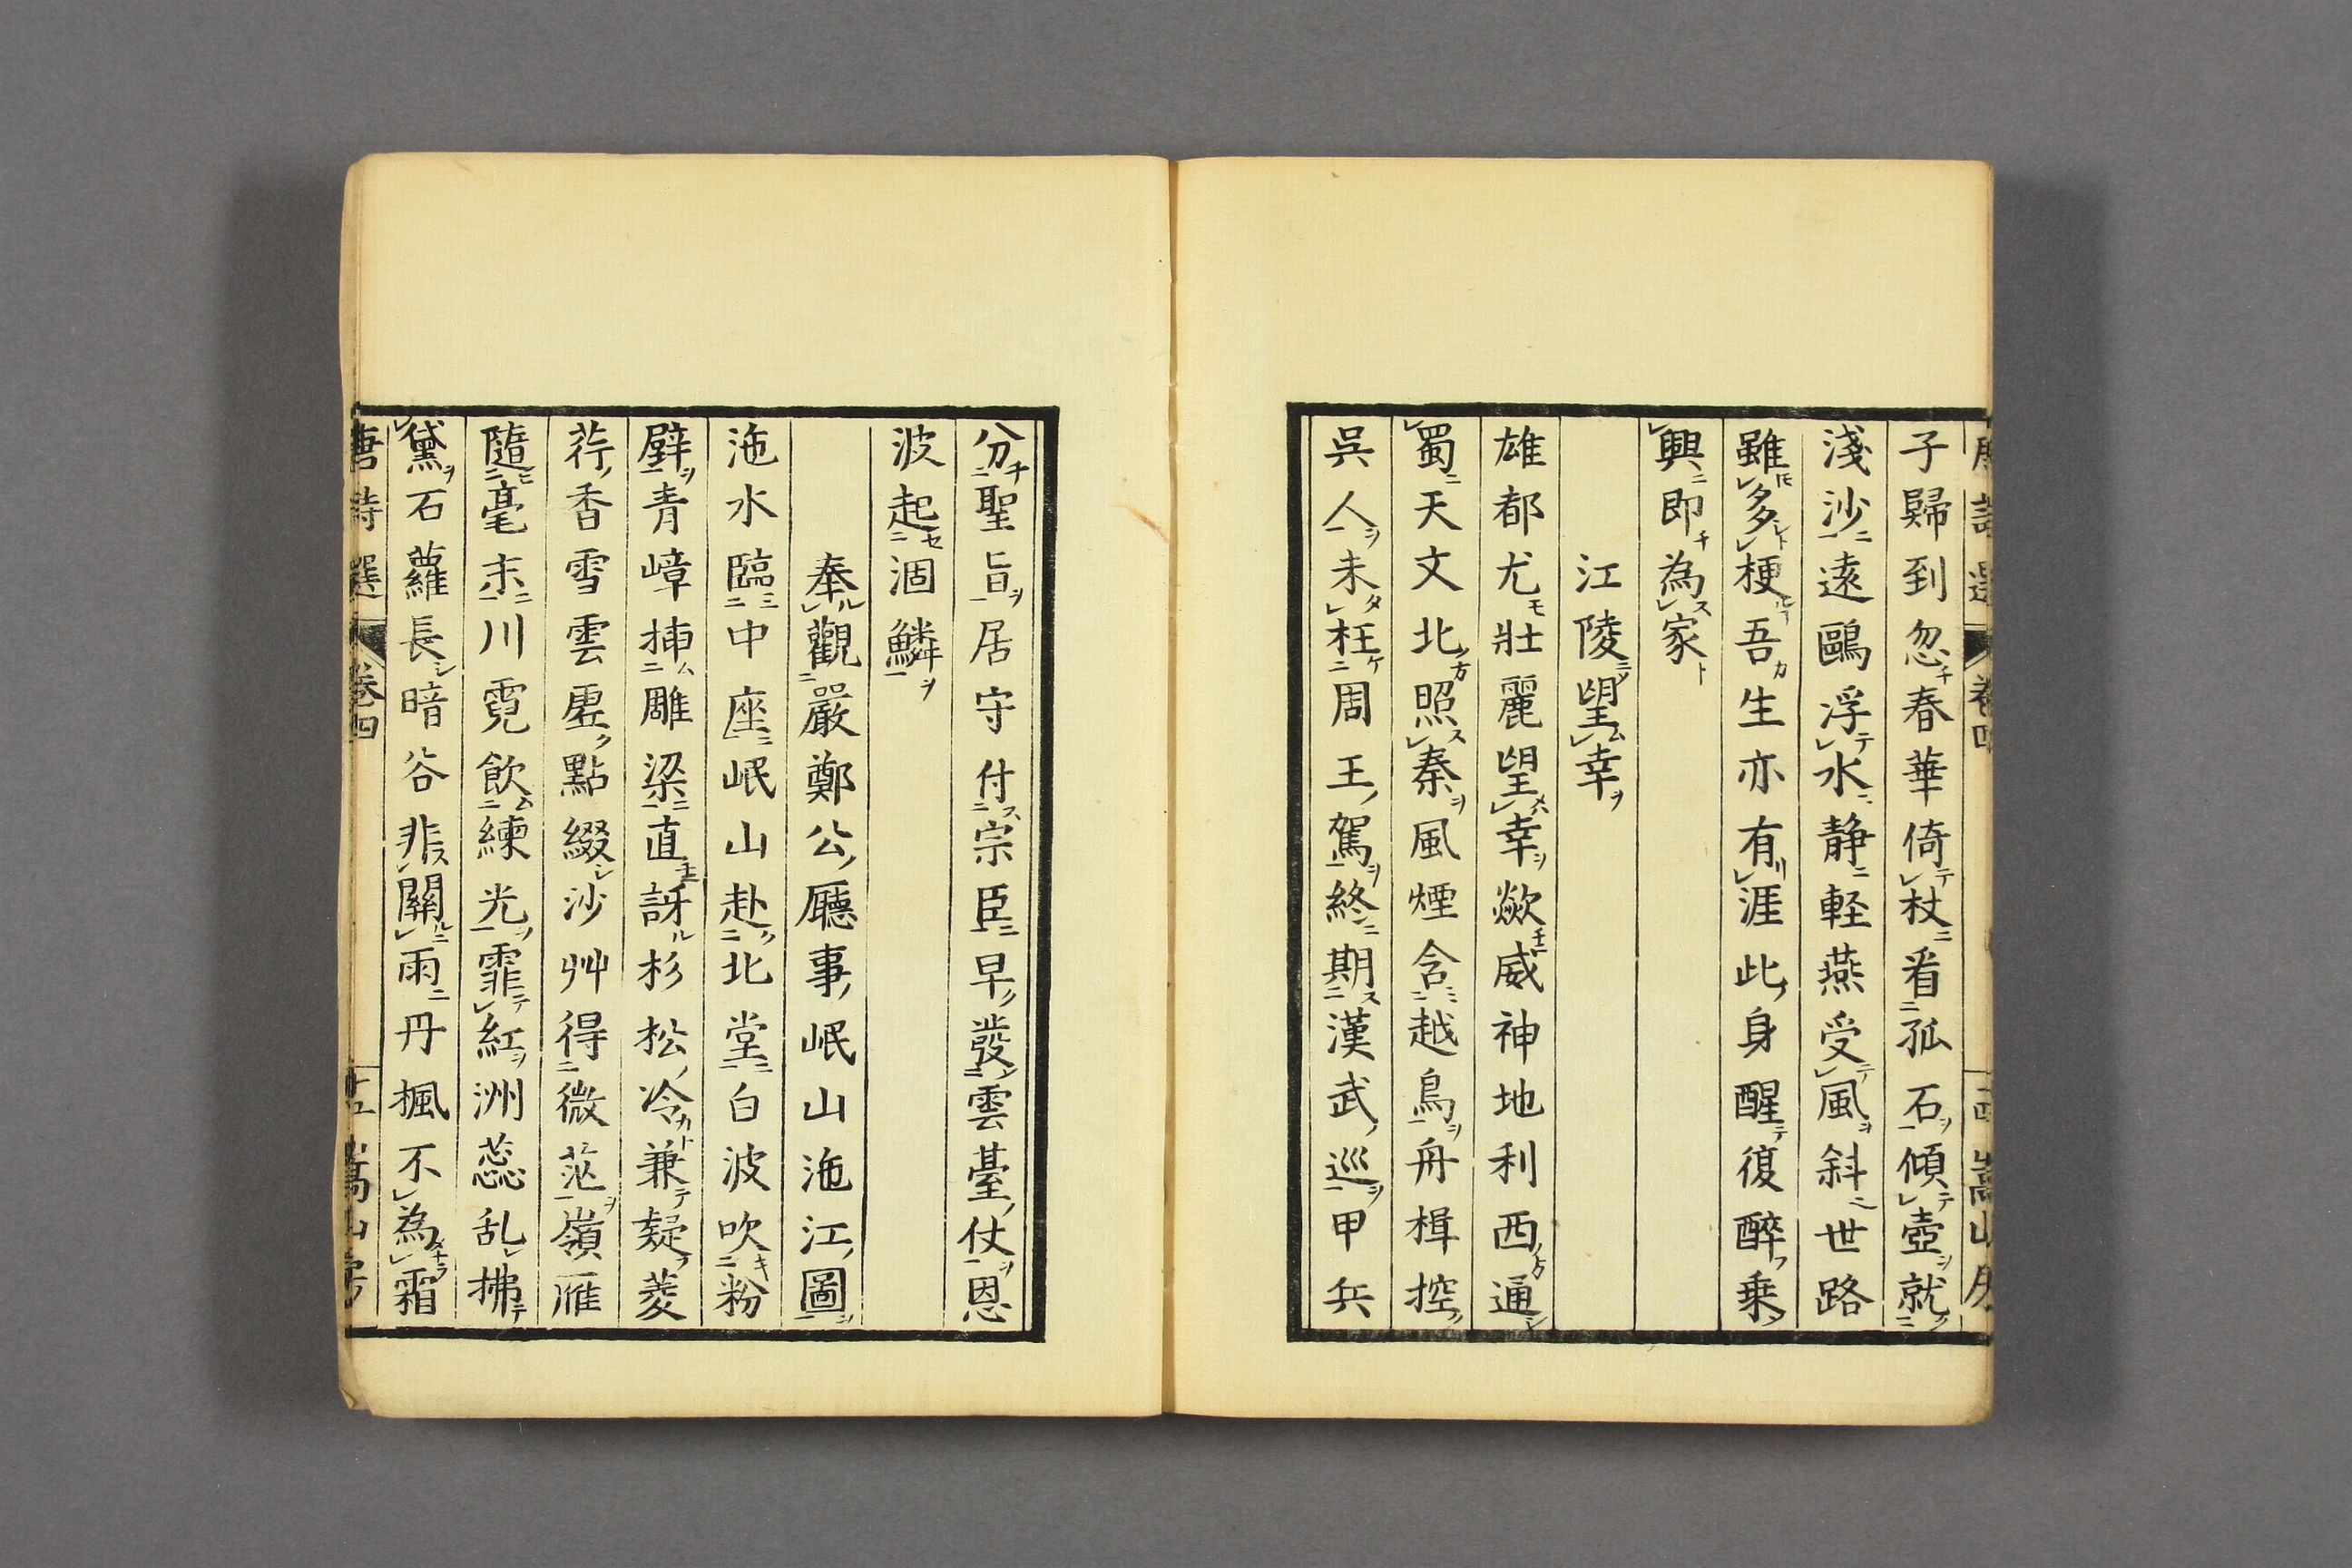 唐詩選 卷四 十四 嵩山房
子歸到忽春華倚杖看孤石傾壺就
淺沙遠鷗浮水静軽燕受風斜世路
雖多梗吾生亦有涯此身醒復醉乗
興即為家
江陵望幸
雄都尤壯麗望幸歘威神地利西通
蜀天文北照秦風煙含越鳥舟楫控
吳人未枉周王駕終期漢武巡甲兵
分聖旨居守付宗臣早發雲臺仗恩
波起涸鱗
奉觀嚴鄭公廳事岷山沲江圖
沲水臨中座岷山赴北堂白波吹粉
壁青嶂挿雕梁直訝杉松冷兼疑菱
荇香雪雲虛點綴沙艸得微茫嶺雁
隨毫末川霓飲練光霏紅洲蕊乱拂
黛石蘿長暗谷非關雨丹楓不為霜
唐詩選 卷四 十五 嵩山房